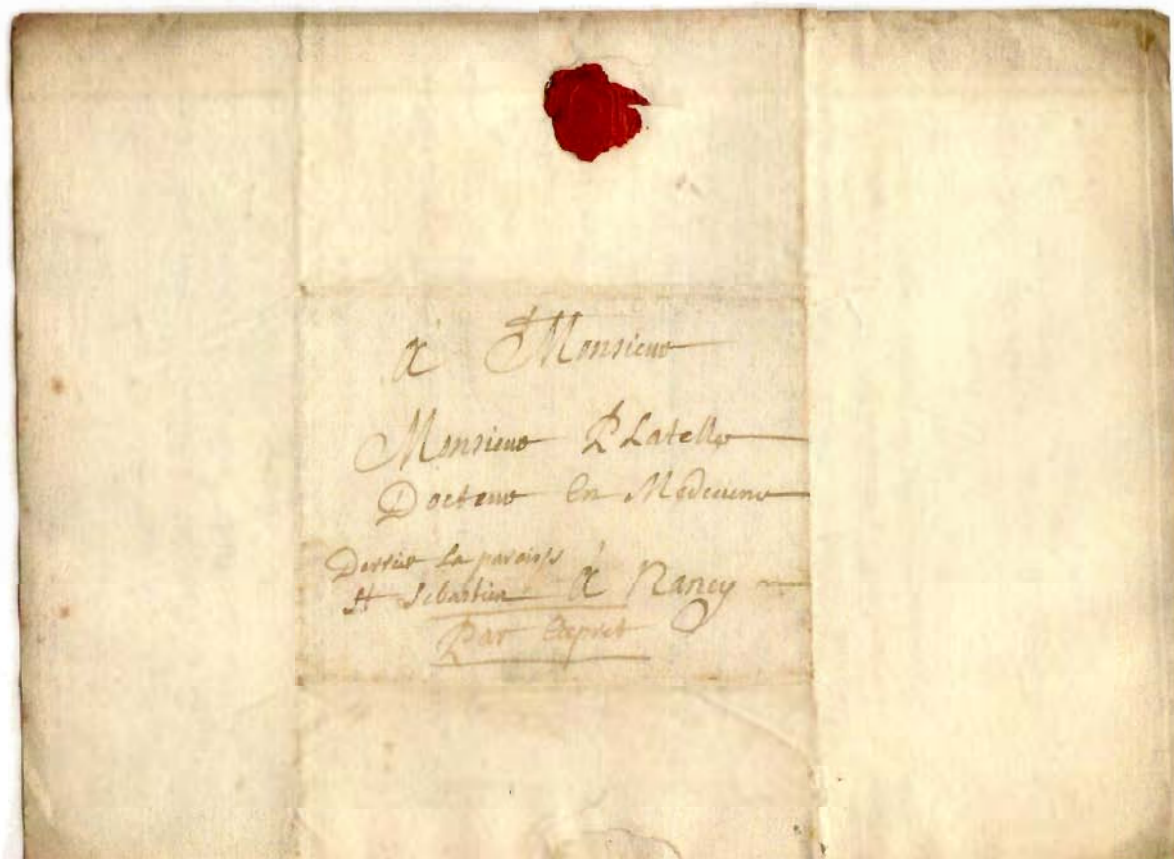 à Monsieur
Monsieur Platelle
Docteur En Medecienne
Derrier La paroisse
St Sebastien à Nancy
Par Expret